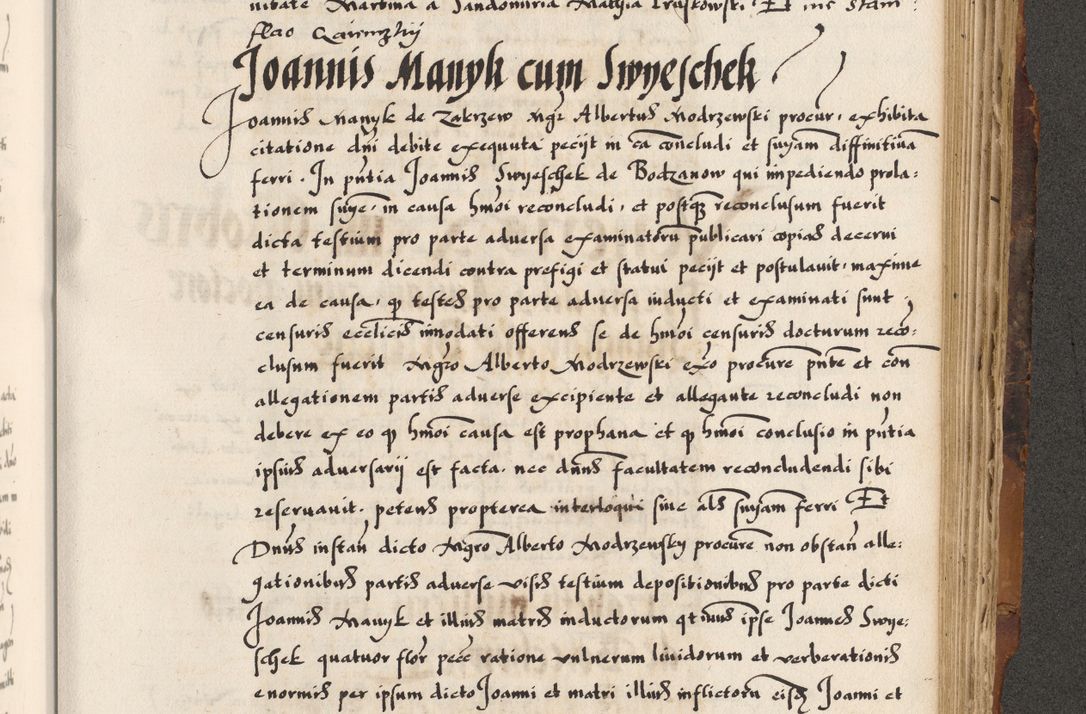 nitate Martina a Sandomiria Mathia Truskowski Et me Stani:
slao Qui
Joannis Manyk cum Swyeschek
Joannis Manyk de Zakrzew Mgr Albertus Modrzewski procur, exhibita
citatione dni debite exequuta pecijt in ca concludi et snyam diffinitiva
ferri. In pntia Joannis Swyeschek de Bodzanow qui impediendo prola:
tionem snye, in causa hmoi reconcludi, et postq reconclusum fuerit
dicta testium pro parte adversa examinatoru publicari copias decerni
et terminum dicendi contra prefigi et statui pecijt et postulavit, maxime
ea de causa, q testes pro parte adversa inducti et examinati sunt
censuris ecclicis innodati offerens se de hmoi censuris docturum reco:
clusum fuerit Mgro Alberto Modrzewski exo procure pnte et con
allegationem partis adverse excipiente et allegante reconcludi non
debere ex eo q hmoi causa est prophana et q hmoi conclusio in pntia
ipsius adversarij est facta, nec dnus facultatem reconcludendi sibi
reservavit. petens propterea interloqui sive als snyam ferri Et
Dnus instan dicto Mgro Alberto Modrzewsky procure non obstan alle:
gationibus partis adverse visis testium depositionibus pro parte dicti
Joannis Manyk et illius matris inductorum qt unus ipse Joannes Swye:
schek quatuor flor pecc ratione vulnerum lividorum et verberationis
enormis per ipsum dicto Joanni et matri illius inflictoru eisq Joanni et